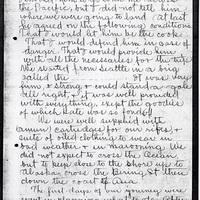 the Pacific, but I did not tell him
where we were going to land. At last
he agreed on the following conditions
that I would let him be the cook.
That I would defend him in case of
danger. That I would provide him
with all the necessaries for the trip
We started from Seattle in a brig
called the It was very
firm & strong & could stand a gale
all right, & it was well provided
with everything, except the goodies
of which Kate was so fond
We were well supplied with
ammun cartridges for our rifles &
suits of oiled clothing to wear in
bad weather & in marooning. We
did not expect to cross the Ocean
but to keep close to the shore up to
Alaska cross the Bering St then
down the coast of Asia.
The first days of our journey were